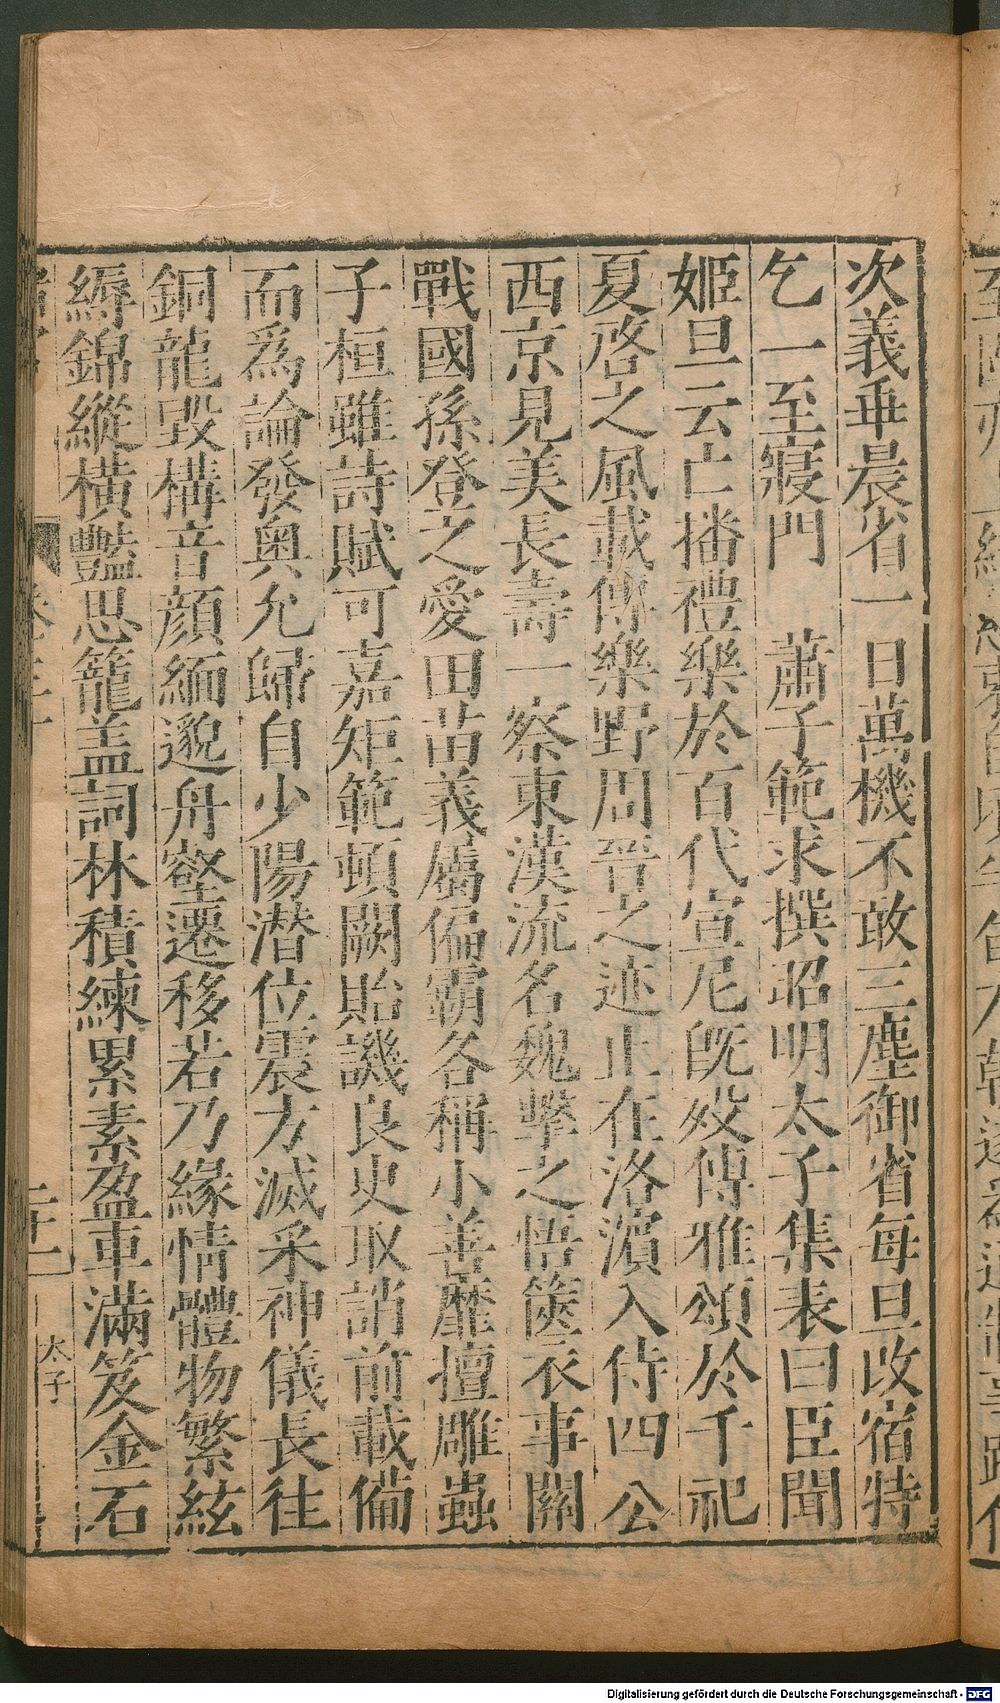 次義垂晨省一日萬機不敢三塵御省每旦改宿特
乞一至寢門　蕭子範求撰昭明太子集表曰臣聞
姬旦云亡播禮樂於百代宣尼旣歿傳雅頌於千祀
夏啓之風載傳樂野周晉之迹止在洛濱入侍四公
西京見美長壽一察東漢流名魏犖之悟篋衣事關
戰國孫登之愛田苗義屬偏霸各稱小善靡擅雕蟲
子桓雖詩賦可嘉矩範頓闕貽譏良史取誚前載備
而爲論發奧允歸自少陽潜位震方滅采神儀長往
銅龍毀構音顔緬邈舟壑遷移若乃緣情體物繁絃
縟錦縱橫艷思籠盖詞林積練累素盈車滿笈金石
二十一
太子
Digitalisierung gefördert durch die Deutsche Forschungsgemeinschaft - DFG